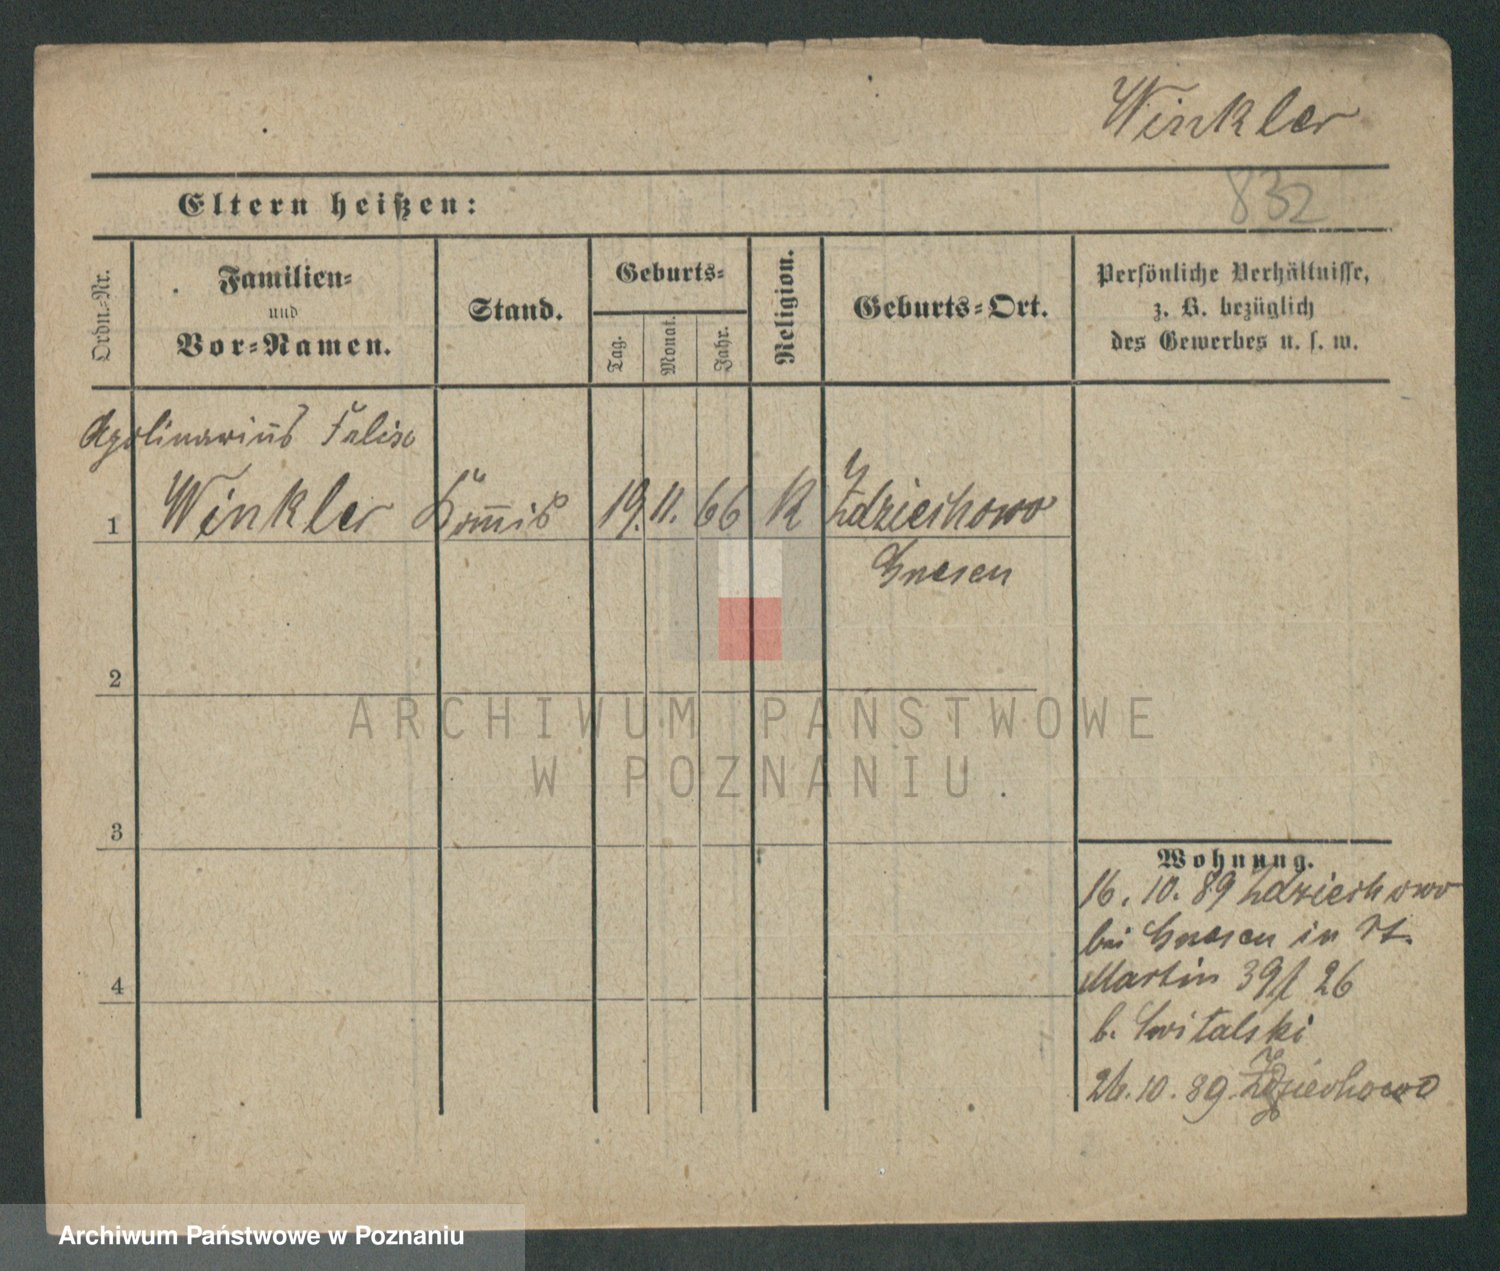 Winkler
832
Eltern heißen:
Ordn.-Nr.
Familien-
und
Vor-Namen.
Stand.
Geburts-
Tag.
Monat.
Jahr.
Religion.
Geburts-Ort.
Persönliche Verhältnisse,
z. B. bezüglich
des Gewerbes u. s. w.
Apolinarius Felix
1 Winkler Kom̅is 19. 11. 66 K Zdziechowo
Gnesen
2
3
4
Wohnung.
16. 10. 89 Zdziechowo
bei Gnesen in St.
Martin 39/ 26
b. Switalski
26. 10. 89 Zdziechowo
ARCHIWUM PAŃSTWOWE
W POZNANIU.
Archiwum Państwowe w Poznaniu